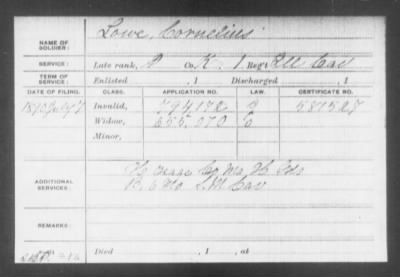 NAME OF SOLDIER: Lowe, Cornelius
SERVICE: Late rank, P Co. K. 1 Reg't Ill Cav
TERM OF SERVICE: Enlisted , 1 Discharged , 1
DATE OF FILING. CLASS. APPLICATION NO. LAW. CERTIFICATE NO.
1890 July 7 Invalid, 794172 587527
Widow, 655.070
Minor,
ADDITIONAL SERVICES: Co. Mo. H.
Mo S. M Cav
REMARKS:
Died , 1 , at